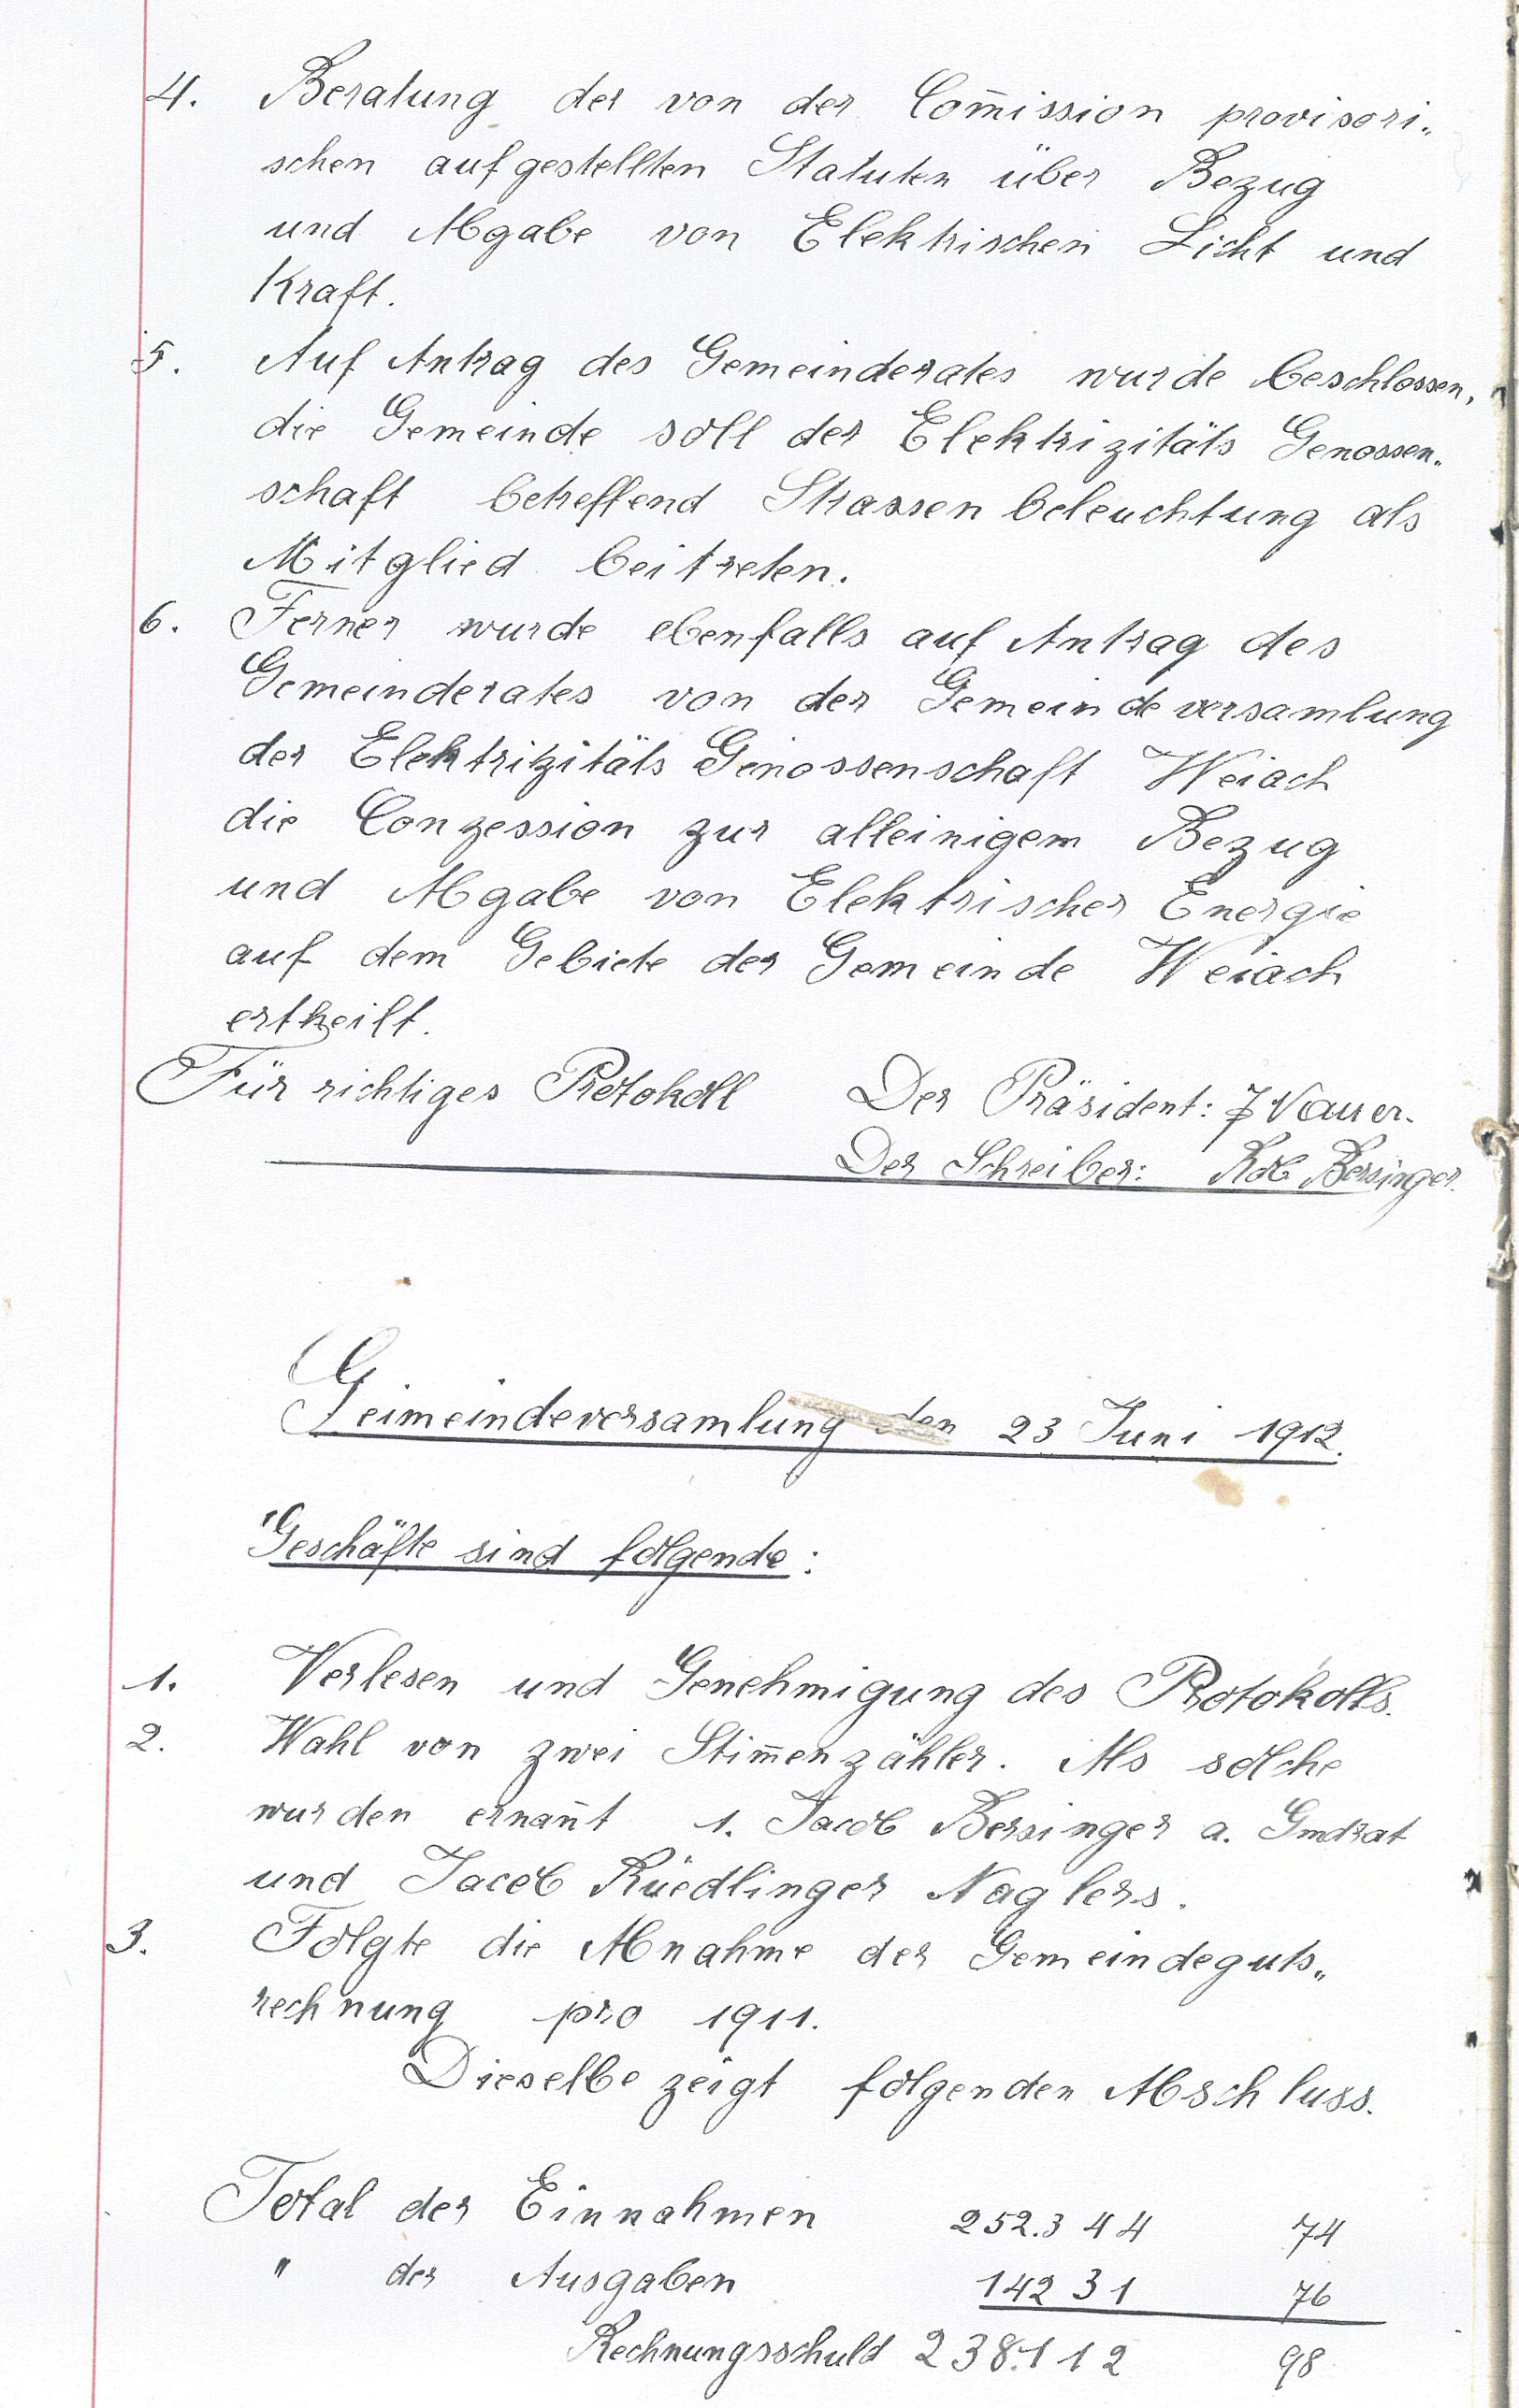 4. Beratung der von der Com̅ission provisori„
schen aufgestellten Statuten über Bezug
und Abgabe von Elektrischen Licht und
Kraft.
5. Auf Antrag des Gemeinderates wurde beschlossen,
die Gemeinde soll der Elektrizitäts Genossen„
schaft betreffend Strassenbeleuchtung als
Mitglied beitreten.
6. Ferner wurde ebenfalls auf Antrag des
Gemeinderates von der Gemeindeversamlung
der Elektritzitäts Genossenschaft Weiach
die Conzession zur alleinigem Bezug
und Abgabe von Elektrischer Energie
auf dem Gebiete der Gemeinde Weiach
ertheilt.
Für richtiges Protokoll Der Präsident: J Nauer.
Der Schreiber: Rob Bersinger.
Geimeindeversamlung den 23 Juni 1912.
Geschäfte sind folgende:
1. Verlesen und Genehmigung des Protokolls.
2. Wahl von zwei Stim̅enzähler. Als solche
wurden ernan̅t 1. Jacob Bersinger a. Gmdrat
und Jacob Rüedlinger Naglers.
3. Folgte die Abnahme der Gemeindeguts„
rechnung pro 1911.
Dieselbe zeigt folgenden Abschluss.
Total der Einnahmen 252.344 74
" der Ausgaben 14231 76
Rechnungsschuld 238.112 98